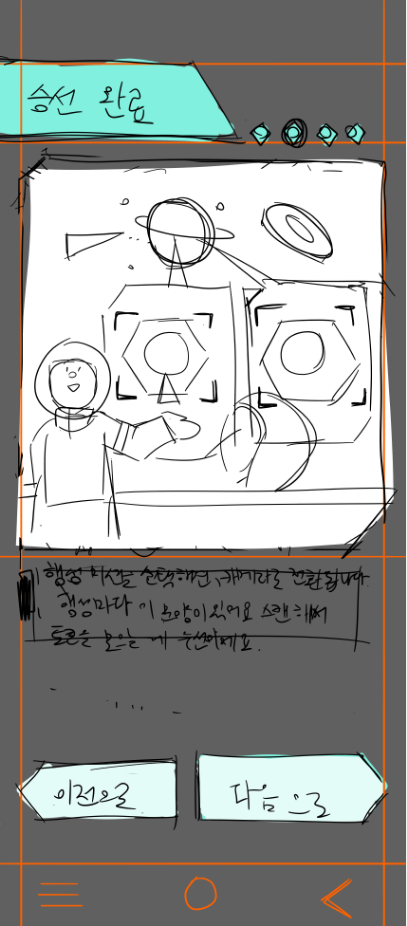 승선 완료
행성 미션을 선택하면, 카메라로 전환됩니다.
행성마다 이 모양이 있어요 스캔해서
토큰을 모으는 게 우선이에요.
이전으로
다음으로